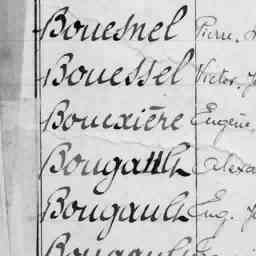 Bouesnel Pierre
Bouessel Victor, J
Bouexière Eugène,
Bougault Alexa
Bougault Eug. J